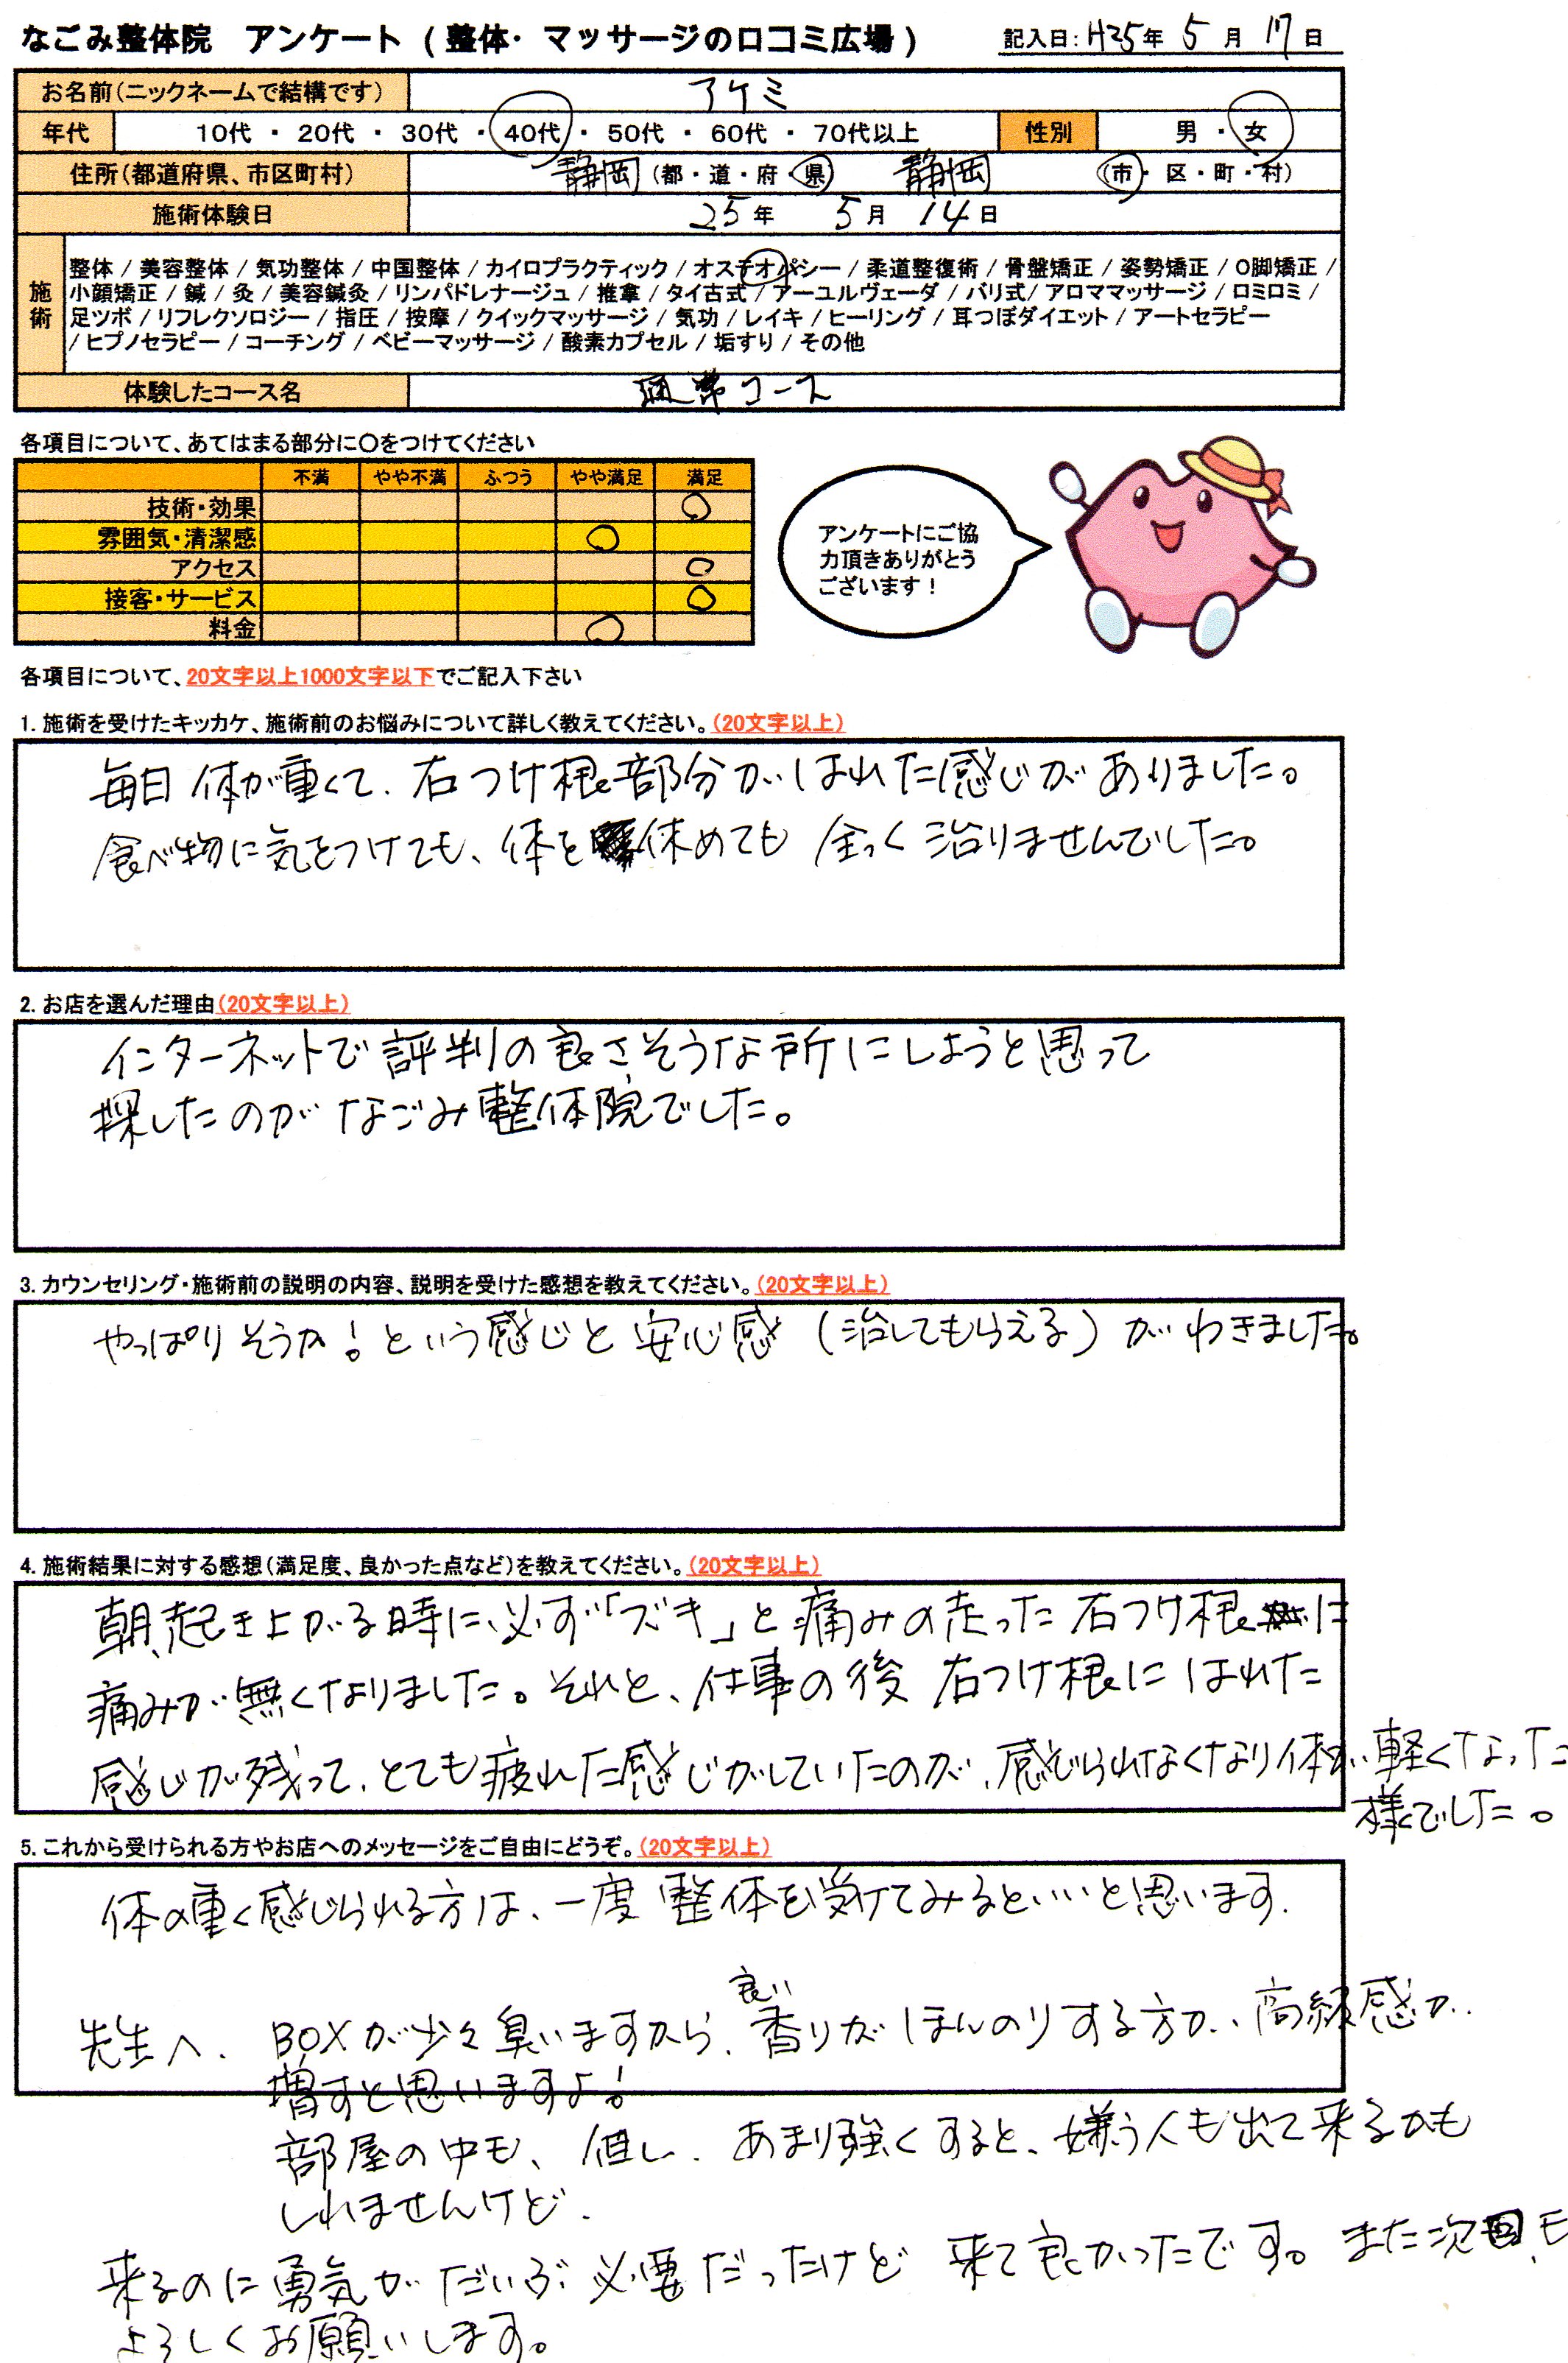 なごみ整体院　アンケート（整体・マッサージの口コミ広場）　記入日：H25年 5月 17日
お名前（ニックネームで結構です）　アケミ
年代　10代 ・ 20代 ・ 30代 ・ 40代 ・ 50代 ・ 60代 ・ 70代以上　性別　男 ・ 女
住所（都道府県、市区町村）　静岡（都・道・府・県）　静岡（市・区・町・村）
施術体験日　25年　5月　14日
施術
整体 / 美容整体 / 気功整体 / 中国整体 / カイロプラクティック / オステオパシー / 柔道整復術 / 骨盤矯正 / 姿勢矯正 / O脚矯正 /
小顔矯正 / 鍼 / 灸 / 美容鍼灸 / リンパドレナージュ / 推拿 / タイ古式 / アーユルヴェーダ / バリ式 / アロママッサージ / ロミロミ /
足ツボ / リフレクソロジー / 指圧 / 按摩 / クイックマッサージ / 気功 / レイキ / ヒーリング / 耳つぼダイエット / アートセラピー
/ ヒプノセラピー / コーチング / ベビーマッサージ / 酸素カプセル / 垢すり / その他
体験したコース名　通常コース
各項目について、あてはまる部分に○をつけてください
不満　やや不満　ふつう　やや満足　満足
技術・効果
雰囲気・清潔感
アクセス
接客・サービス
料金
アンケートにご協
力頂きありがとう
ございます！
各項目について、20文字以上1000文字以下でご記入下さい
1. 施術を受けたキッカケ、施術前のお悩みについて詳しく教えてください。（20文字以上）
毎日 体が重くて、右つけ根部分がはれた感じがありました。
食べ物に気をつけても、体を休めても 全っく治りませんでした。
2. お店を選んだ理由（20文字以上）
インターネットで評判の良さそうな所にしようと思って
探したのが なごみ整体院でした。
3. カウンセリング・施術前の説明の内容、説明を受けた感想を教えてください。（20文字以上）
やっぱりそうか！という感じと 安心感（治してもらえる）がわきました。
4. 施術結果に対する感想（満足度、良かった点など）を教えてください。（20文字以上）
朝、起き上がる時に必ず「ズキ」と痛みの走った右つけ根に
痛みが無くなりました。それと、仕事の後 右つけ根にはれた
感じが残って、とても疲れた感じがしていたのが、感じられなくなり体が軽くなった
様でした。
5. これから受けられる方やお店へのメッセージをご自由にどうぞ。（20文字以上）
体の重く感じられる方は、一度 整体を受けてみるといいと思います.
先生へ. BOXが少々臭いますから、良い香りがほんのりする方が、高級感が
増すと思いますよ！
部屋の中も、但し、あまり強くすると、嫌う人も出て来るかも
しれませんけど.
来るのに勇気がだいぶ必要だったけど 来て良かったです。また次回も
よろしくお願いします。